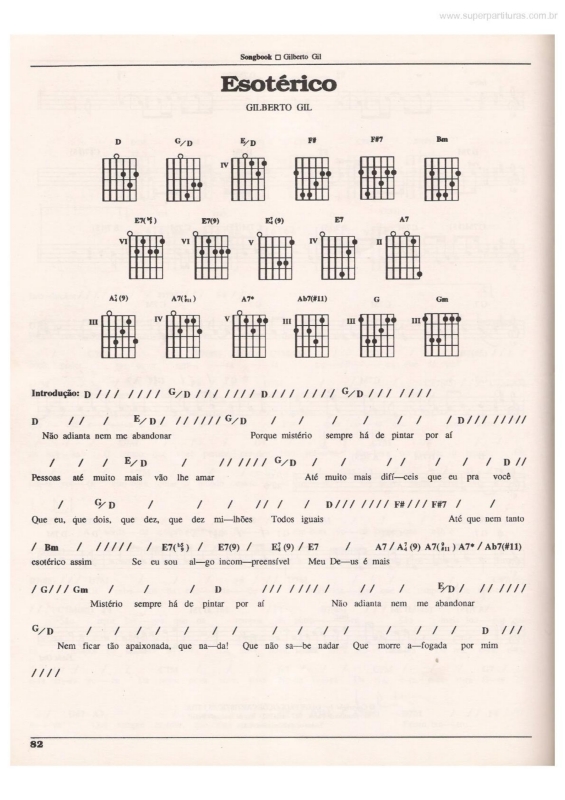 www.superpartituras.com.br
Songbook □ Gilberto Gil
Esotérico
GILBERTO GIL
D G/D E/D F# F#7 Bm
IV
E7(9) E7 A7
VI VI V IV II
A7* Ab7(#11) G Gm
III IV V III III III
Introdução: D / / / / / / / G/D / / / / / / / D / / / / / / / G/D / / / / / / /
D / / / E/D / / / / / / / G/D / / / / / / / D / / / / / / / /
Não adianta nem me abandonar Porque mistério sempre há de pintar por aí
/ / / E/D / / / / / / / G/D / / / / / / / D / /
Pessoas até muito mais vão lhe amar Até muito mais difí—ceis que eu pra você
/ G/D / / / / / / / D / / / / / / / F# / / / F#7 / /
Que eu, que dois, que dez, que dez mi—lhões Todos iguais Até que nem tanto
/ Bm / / / / / / / E7(9) / E7 / A7 / A7* / Ab7(#11)
esotérico assim Se eu sou al—go incom—preensível Meu De—us é mais
/ G / / / Gm / / / D / / / / / / / / / / E/D / / / / / /
Mistério sempre há de pintar por aí Não adianta nem me abandonar
G/D / / / / / / / / / / / / / / / / / D / / /
Nem ficar tão apaixonada, que na—da! Que não sa—be nadar Que morre a—fogada por mim
/ / / /
82